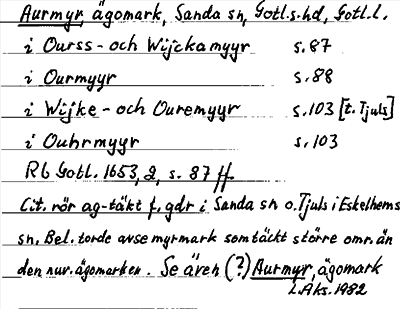 Aurmyr, ägomark, Sanda sn, Gotl.s.hd, Gotl.l.
i Ourss- och Wijckamyyr s. 87
i Ourmyyr s. 88
i Wijke- och Ouremyyr s. 103 [t. Tjuls]
i Ouhrmyyr s. 103
Rb Gotl. 1653, 2, s. 87 ff.
Cit. rör ag-täkt f. gdr i Sanda sn o. Tjuls i Eskelhems
sn. Bel. torde avse myrmark som täckt större omr. än
den nuv. ägomarken. Se även (?) Aurmyr, ägomark
L.Aks. 1982